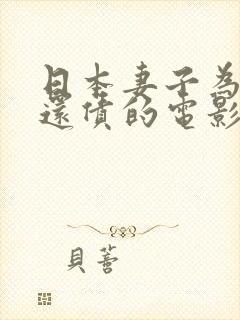 日本妻子為
還債的電影
貝蒼